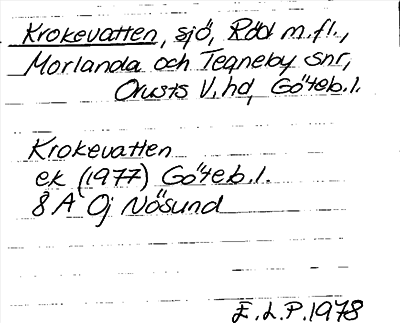 Krokevatten, sjö, Röd m.fl.,
Morlanda och Tegneby snr,
Orusts V. hd, Göteb. l.
Krokevatten
ek (1977) Göteb. l.
8 A Oj Nösund
E. L. P. 1978